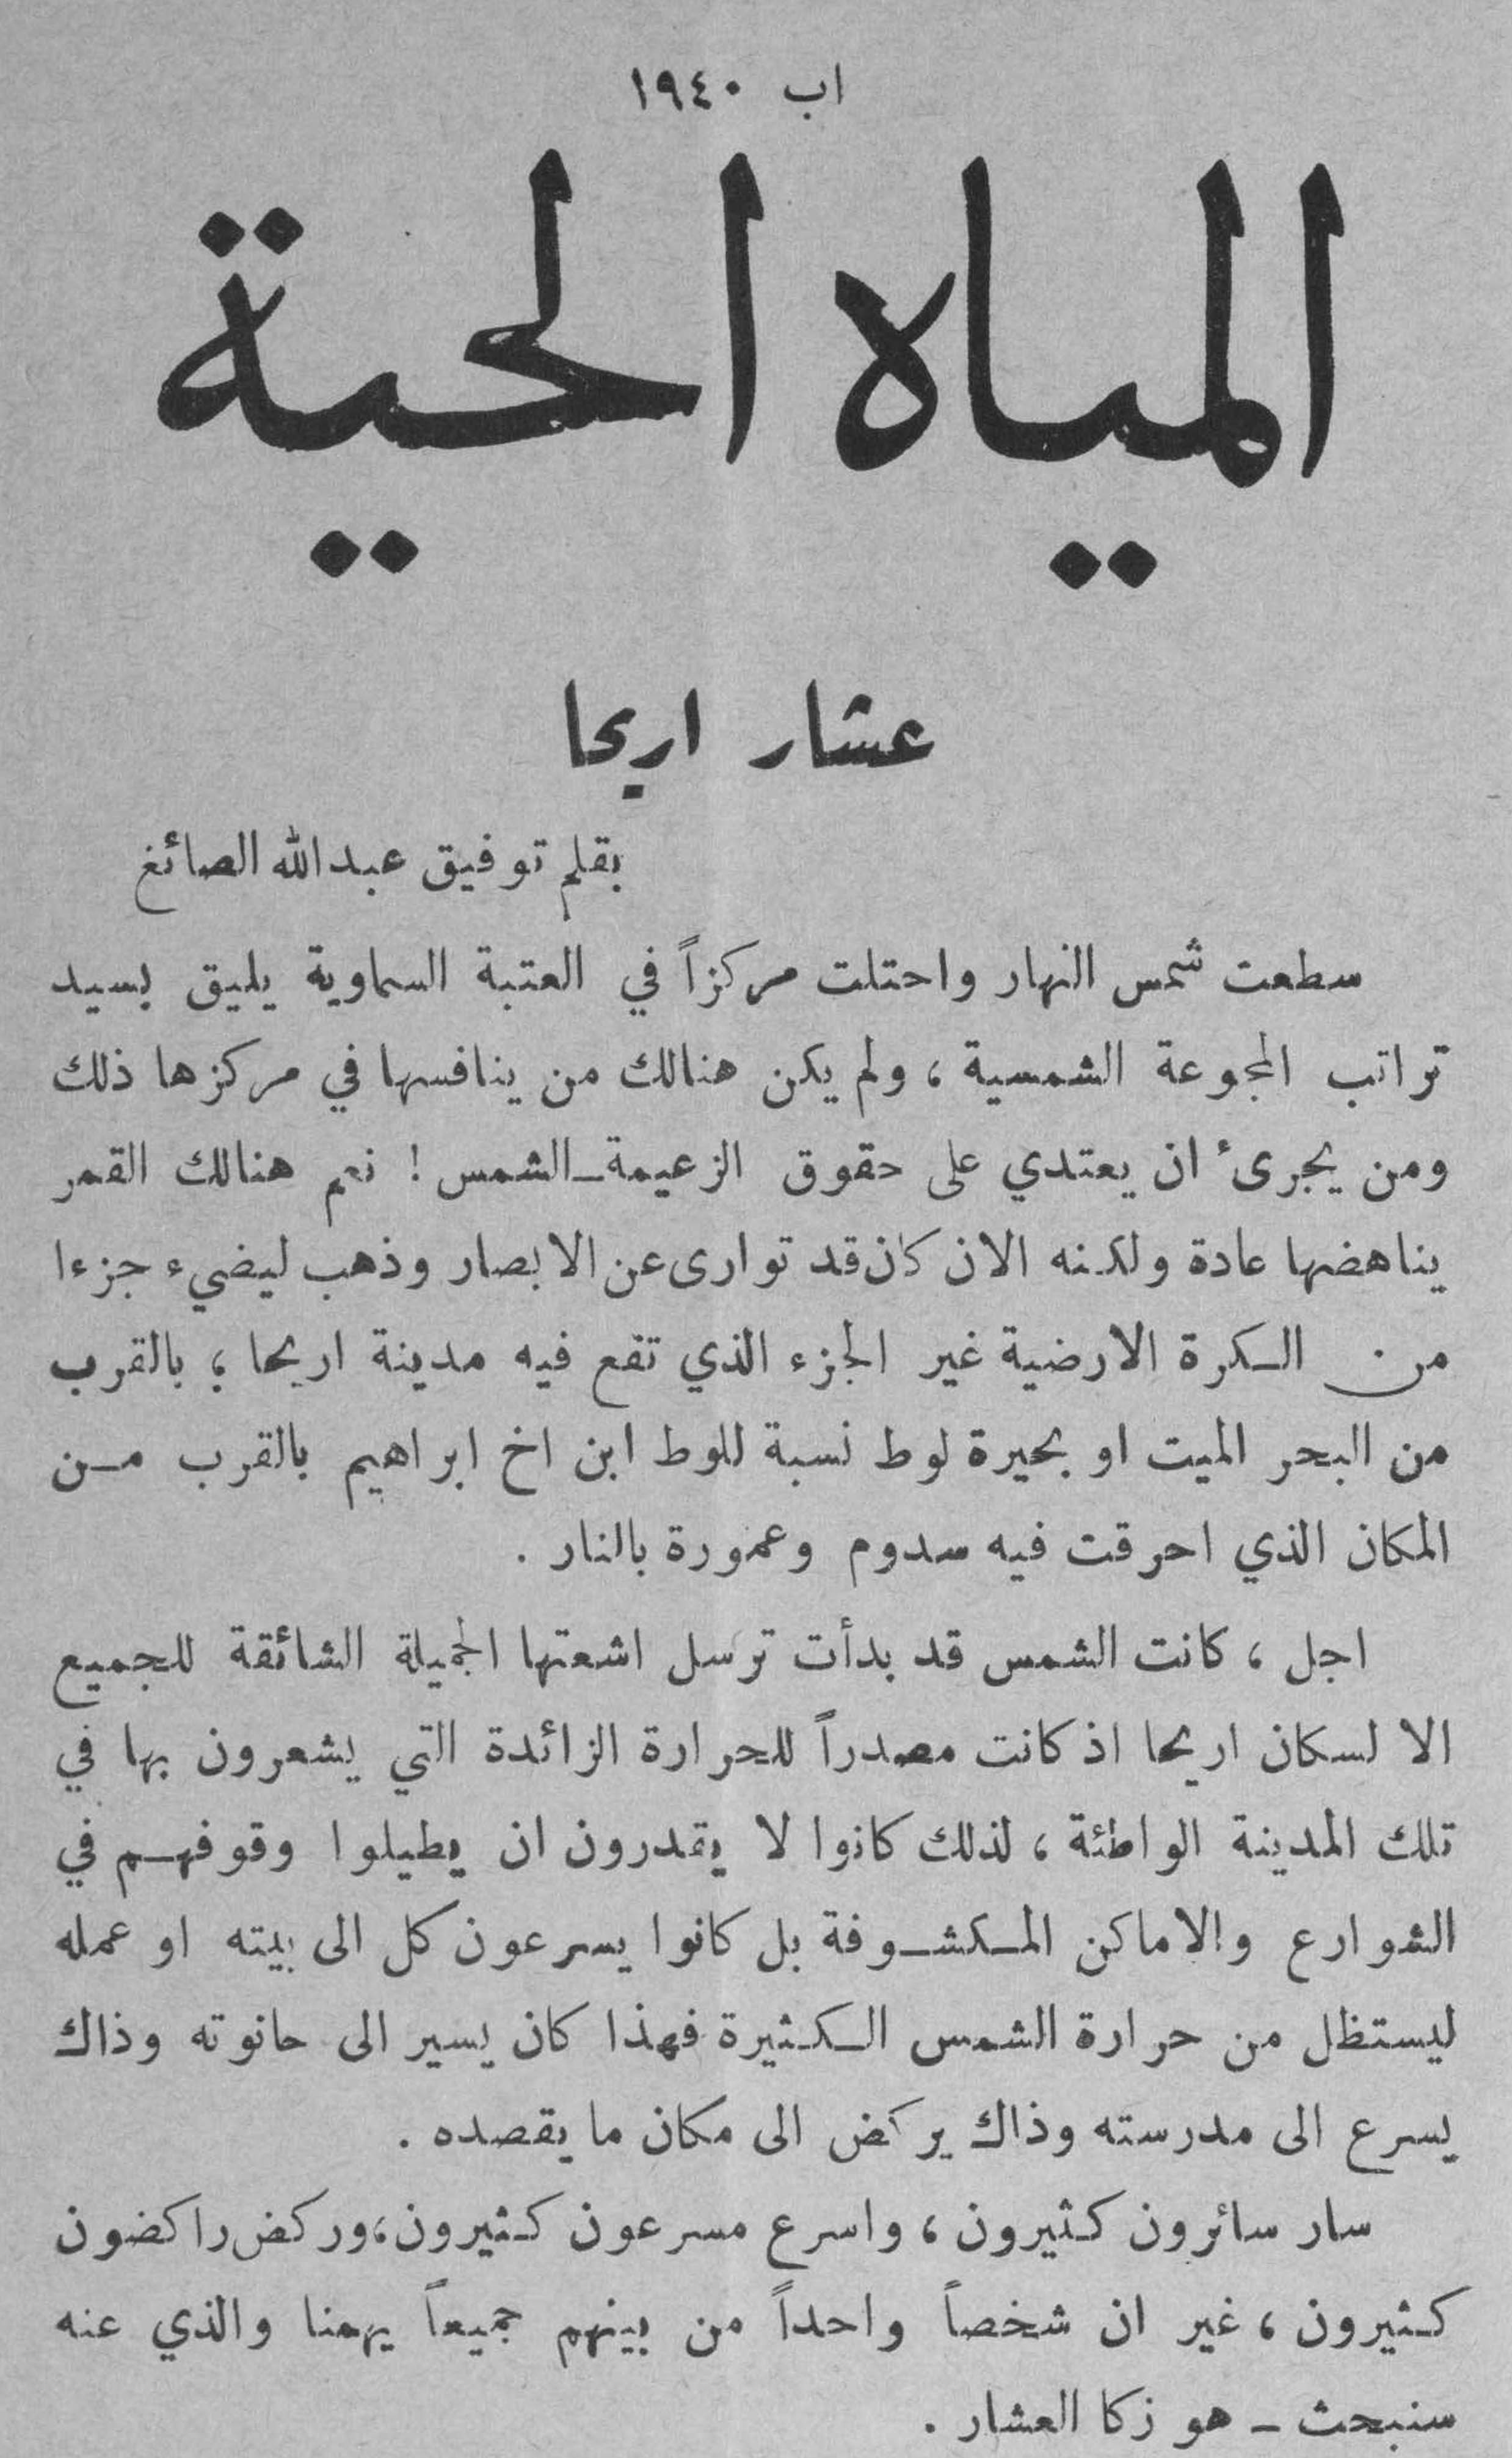 اب ١٩٤٠
المياه الحية
عشار اريحا
بقلم توفيق عبدالله الصائغ
سطعت شمس النهار واحتلت مركزاً في العتبة السماوية يليق بسيد
تراتب المجموعة الشمسية ، ولم يكن هنالك من ينافسها في مركزها ذلك
ومن يجرئ ان يعتدي على حقوق الزعيمة ـ الشمس ! نعم هنالك القمر
يناهضها عادة ولكنه الان كان قد توارى عن الابصار وذهب ليضيء جزءا
من الكرة الارضية غير الجزء الذي تقع فيه مدينة اريحا ؛ بالقرب
من البحر الميت او بحيرة لوط نسبة للوط ابن اخ ابراهيم بالقرب من
المكان الذي احرقت فيه سدوم وعمورة بالنار .
اجل ، كانت الشمس قد بدأت ترسل اشعتها الجميلة الشائقة للجميع
الا لسكان اريحا اذ كانت مصدراً للحرارة الزائدة التي يشعرون بها في
تلك المدينة الواطئة ، لذلك كانوا لا يقدرون ان يطيلوا وقوفهم في
الشوارع والاماكن المكشوفة بل كانوا يسرعون كل الى بيته او عمله
ليستظل من حرارة الشمس الكثيرة فهذا كان يسير الى حانوته وذاك
يسرع الى مدرسته وذاك يركض الى مكان ما يقصده .
سار سائرون كثيرون ، واسرع مسرعون كثيرون ، وركض راكضون
كثيرون ، غير ان شخصاً واحداً من بينهم جميعاً يهمنا والذي عنه
سنبحث ـ هو زكا العشار .